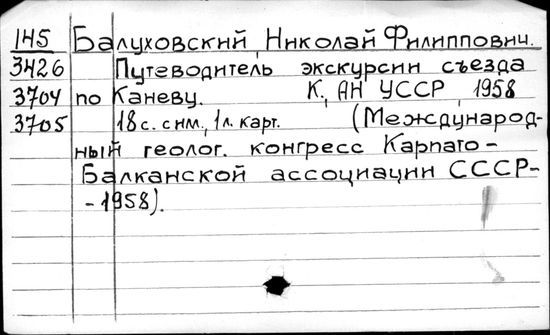 145 Балуховский, Николай Филиппович.
3426 Путеводитель экскурсии съезда
3704 по Каневу. К., АН УССР, 1958
3705 18 с. с им., 1 л. карт. (Международ-
ный геолог. конгресс Карпато-
Балканской ассоциации СССР-
-1958).